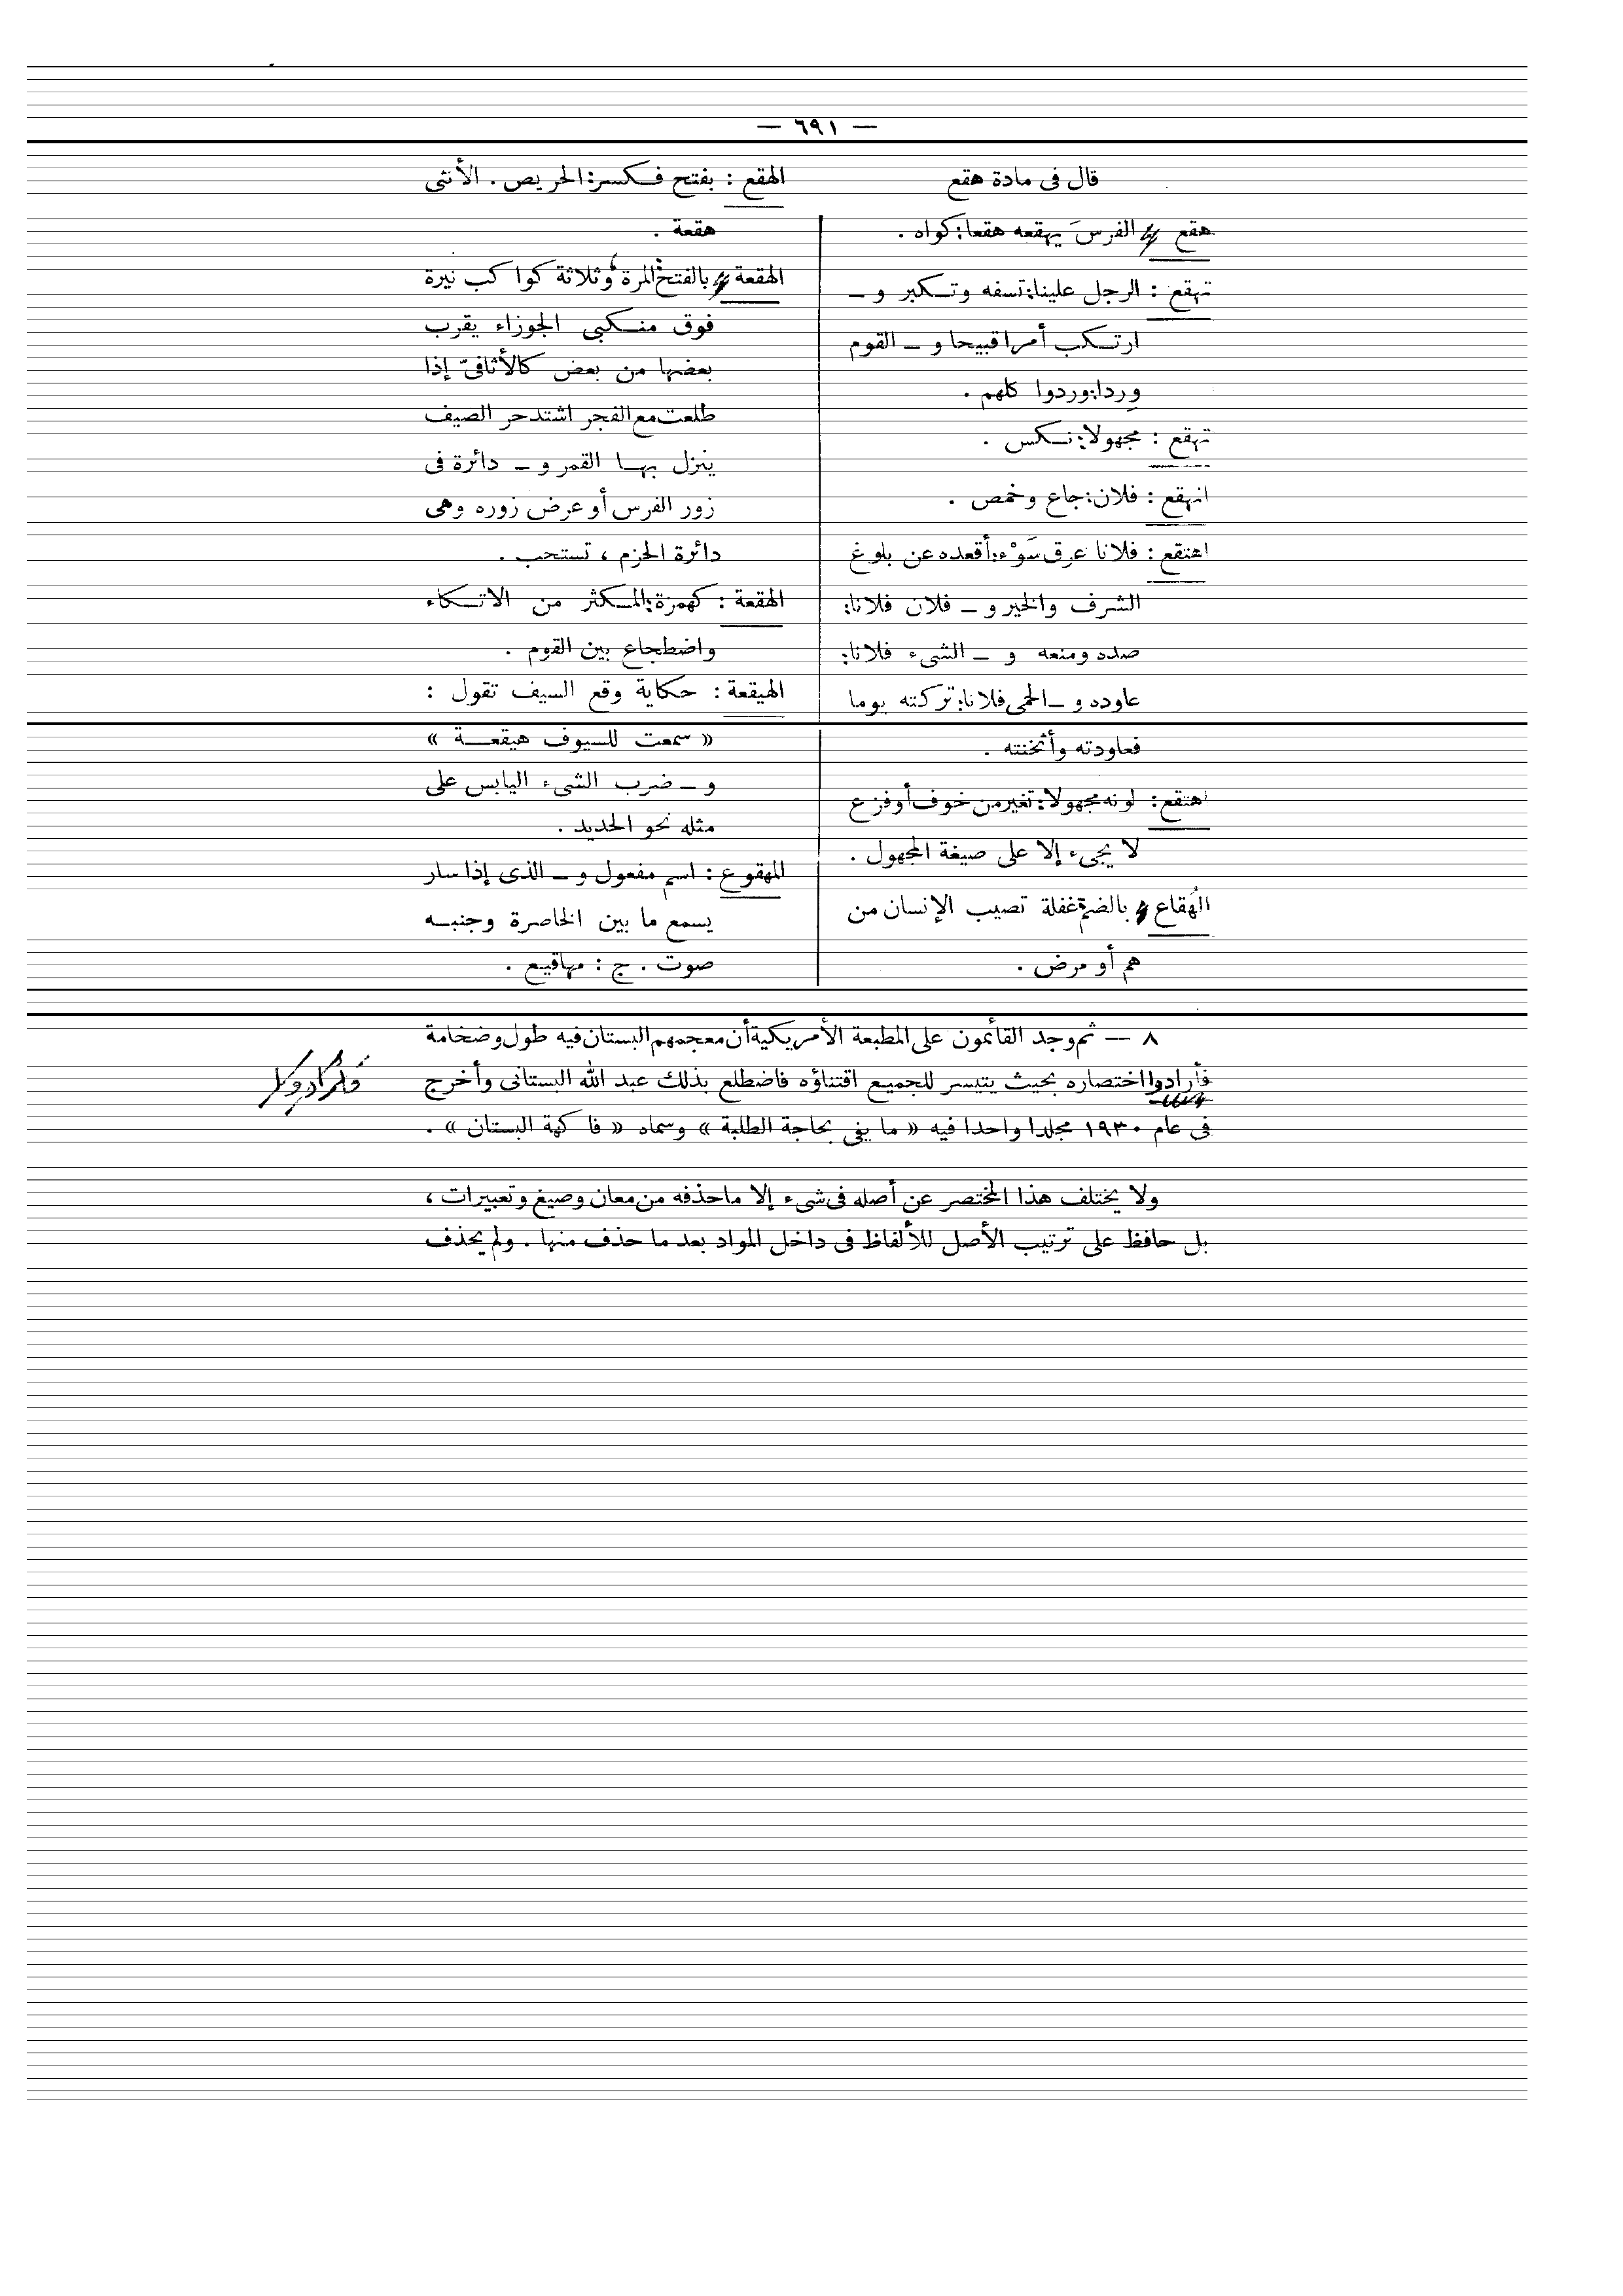 — ٦٩١ —
قال فى مادة هقع
هقع الفرسَ يهقعه هقعا: كواه .
تهقع : الرجل علينا: تسفه وتكبر و ــ
ارتكب أمرا قبيحا و ــ القوم
وِردا: وردوا كلهم .
تهقع : مجهولا: نكس .
انهقع : فلان: جاع وخمص .
اهتقع : فلانا عرق سَوْء: أقعده عن بلوغ
الشرف والخير و ــ فلان فلانا:
صدده ومنعه و ــ الشىء فلانا:
عاوده و ــ الحمى فلانا: تركته يوما
فعاودته وأثخنته .
اهتقع : لونه مجهولا: تغير من خوف أو فزع
لا يجىء إلا على صيغة المجهول .
الهُقاع بالضم غفلة تصيب الإنسان من
هم أو مرض .
الهقع : بفتح فكسر: الحريص . الأنثى
هقعة .
الهقعة بالفتح: المرة، وثلاثة كواكب نيرة
فوق منكبى الجوزاء يقرب
بعضها من بعض كالأثافىّ إذا
طلعت مع الفجر اشتد حر الصيف
ينزل بها القمر و ــ دائرة فى
زور الفرس أو عرض زوره وهى
دائرة الحزم ، تستحب .
الهقعة : كهمزة: المكثر من الاتكاء
واضطجاع بين القوم .
الهيقعة : حكاية وقع السيف تقول :
« سمعت للسيوف هيقعة »
و ــ ضرب الشىء اليابس على
مثله نحو الحديد .
المهقوع : اسم مفعول و ــ الذى إذا سار
يسمع ما بين الخاصرة وجنبه
صوت . ج : مهاقيع .
٨ — ثم وجد القائمون على المطبعة الأمريكية أن معجمهم البستان فيه طول وضخامة
فأرادوا اختصاره بحيث يتيسر للجميع اقتناؤه فاضطلع بذلك عبد الله البستانى وأخرج
فى عام ١٩٣٠ مجلدا واحدا فيه « ما يفى بحاجة الطلبة » وسماه « فاكهة البستان » .
ولا يختلف هذا المختصر عن أصله فى شىء إلا ما حذفه من معان وصيغ وتعبيرات ،
بل حافظ على ترتيب الأصل للألفاظ فى داخل المواد بعد ما حذف منها . ولم يحذف